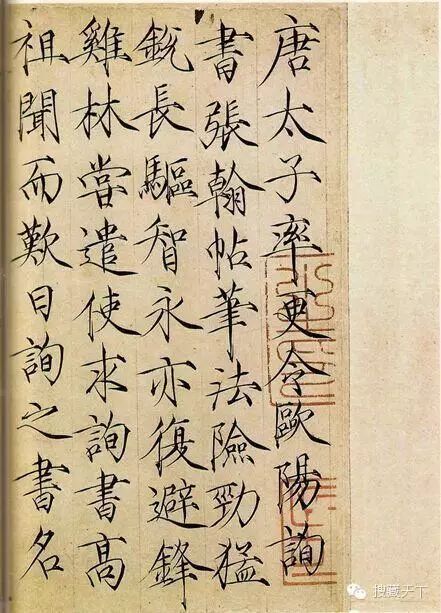 唐太子率更令歐陽詢
書張翰帖筆法險勁猛
銳長驅智永亦復避鋒
雞林嘗遣使求詢書高
祖聞而歎曰詢之書名
搜藏天下